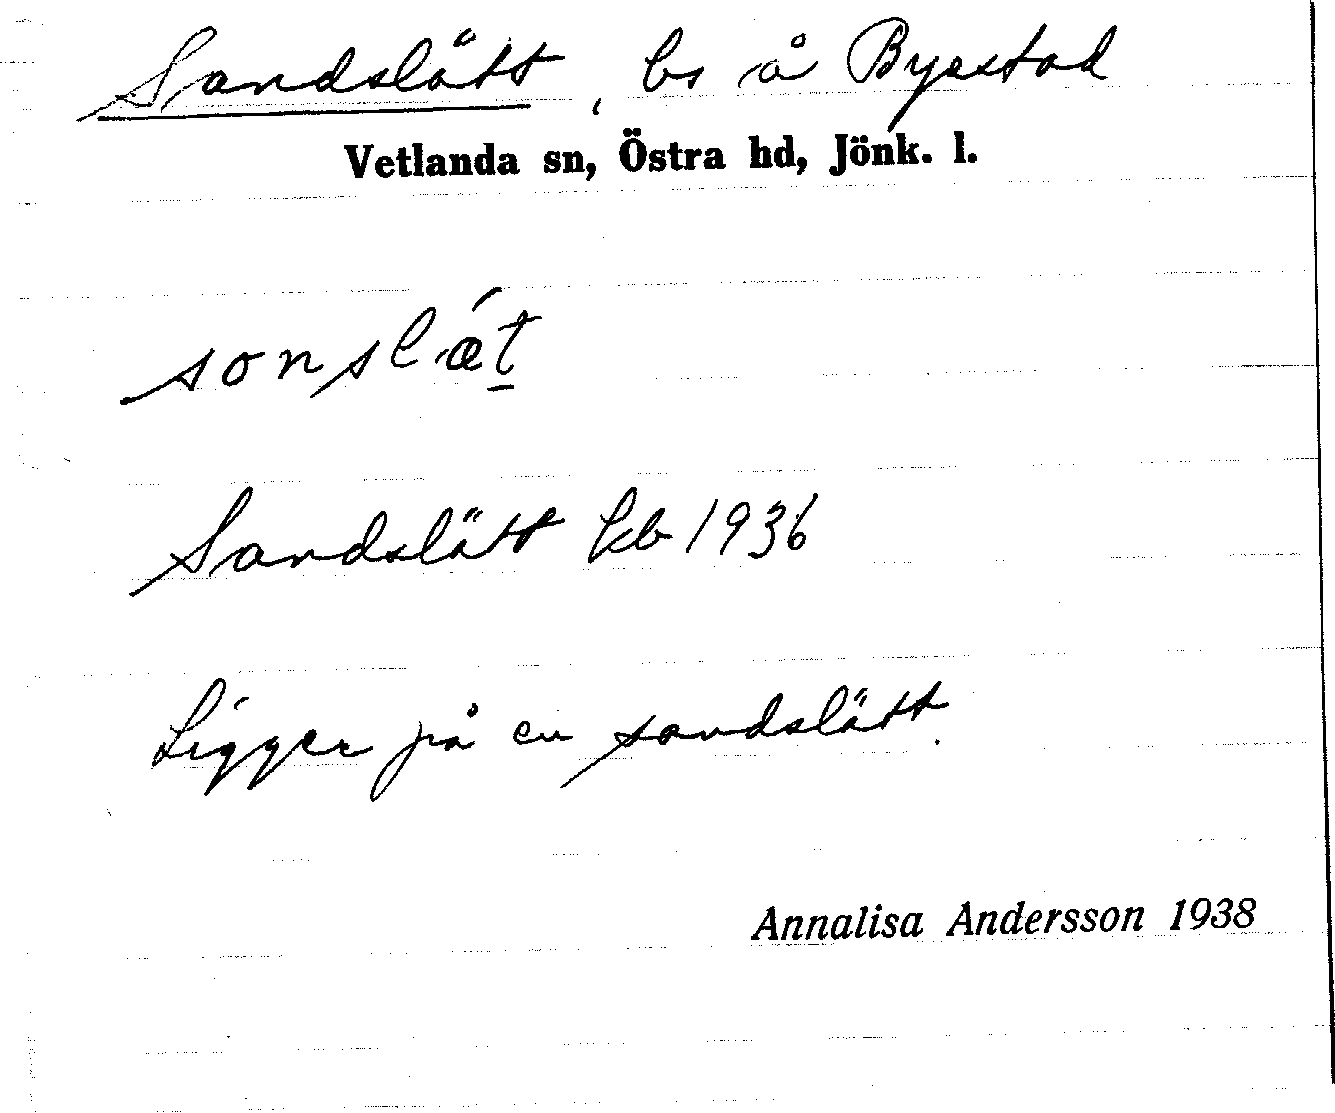 Sandslätt, bs å Byestad
Vetlanda sn, Östra hd, Jönk. l.
sonslǽt
Sandslätt kb 1936
Ligger på en sandslätt.
Annalisa Andersson 1938